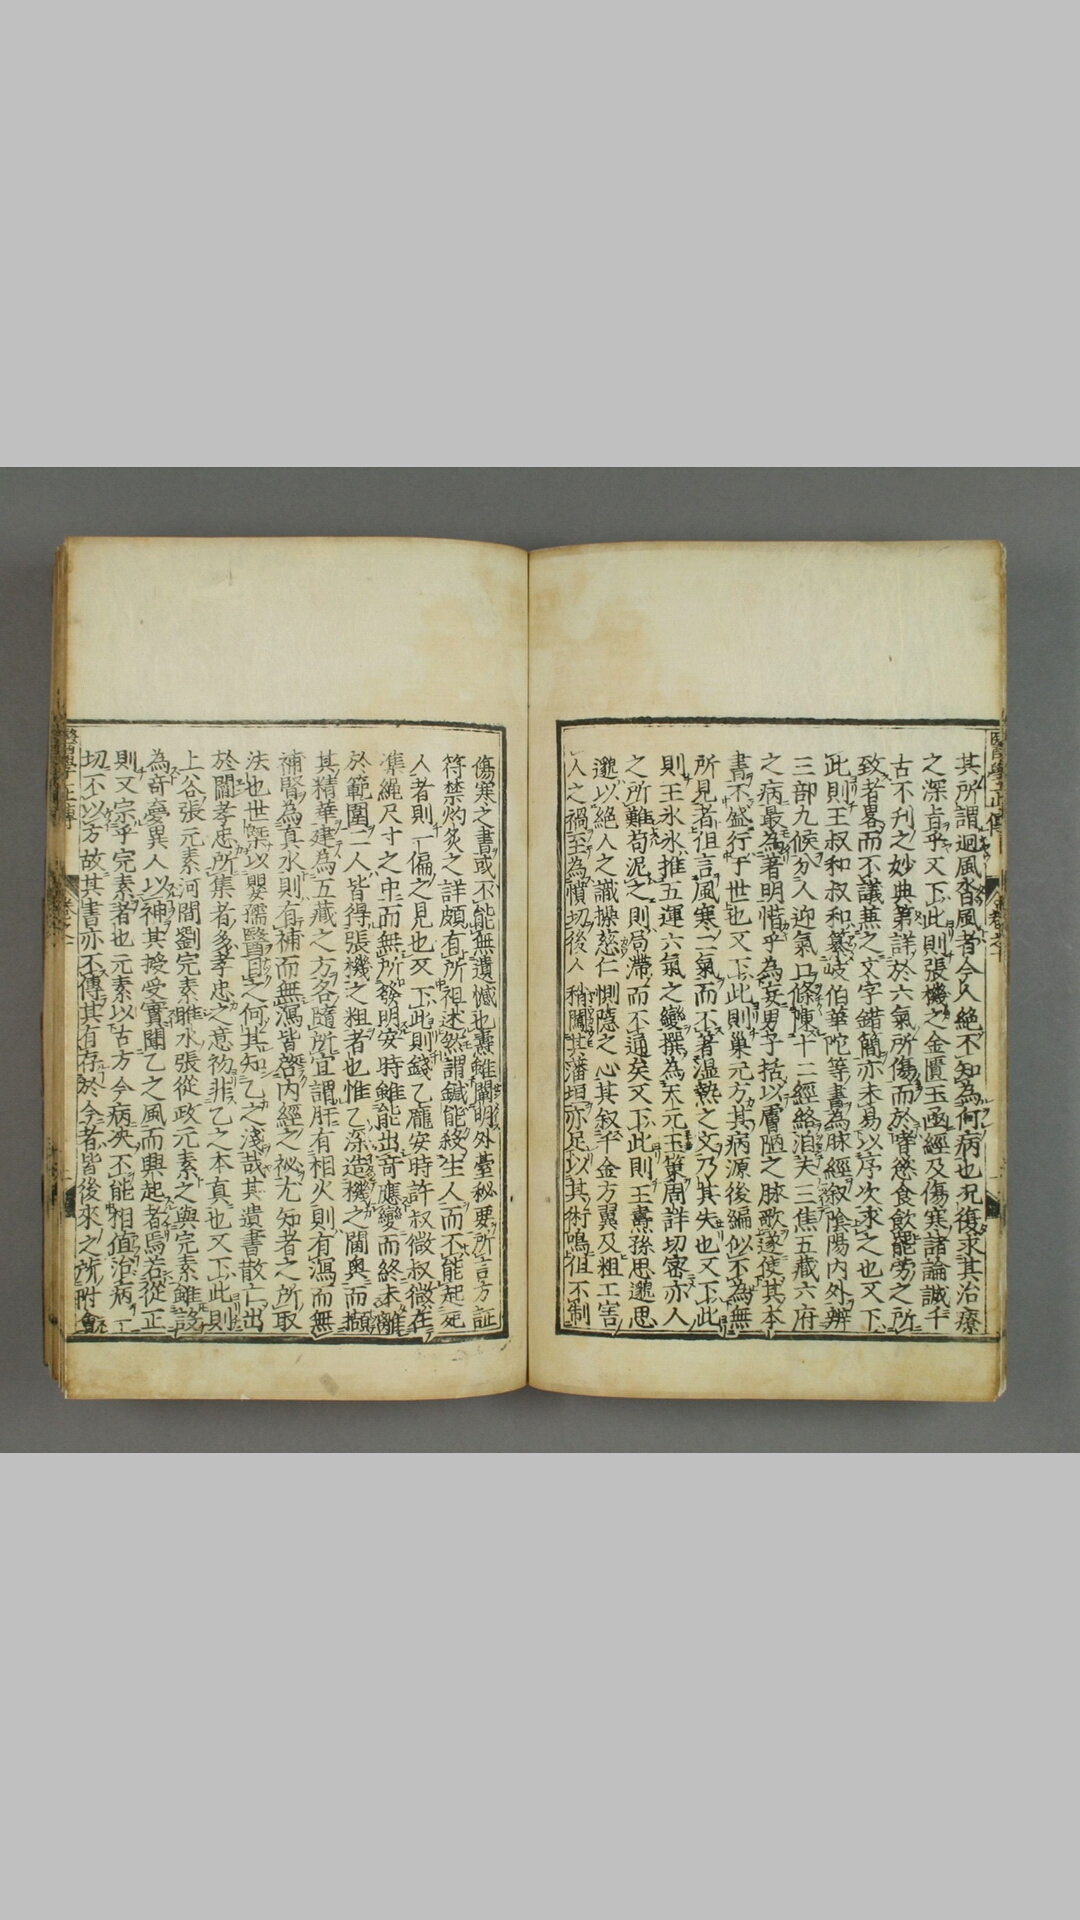 其所謂迴風沓風者今人絶不知為何病也況復求其治療
之深旨乎又下此則張機之金匱玉函經及傷寒諸論誠千
古不刋之妙典第詳於六氣所傷而於嗜慾食飲罷勞之所
致者畧而不議蕪之文字錯簡亦未易以序次求之也又下
此則王叔和叔和纂岐伯華陀等書為脉經叙陰陽内外辨
三部九候分人迎氣口條陳十二經絡洎夫三焦五藏六府
之病最為著明惜乎為妄男子括以膚陋之脉歌遂使其本
書不盛行于世也又下此則巢元方其病源後編似不為無
所見者但言風寒二氣而不著温熱之文乃其失也又下此
則王氷氷推五運六氣之變撰為天元玉策周詳切密亦人
之所難苟泥之則局滯而不通矣又下此則王燾孫思邈思
邈以絶人之識操慈仁惻隠之心其叙千金方翼及粗工害
人之禍至為憤切後人稍闖其藩垣亦足以其術鳴但不制
醫學正傳
傷寒之書或不能無遺憾也燾雖闡明外臺秘要所言方証
符禁灼灸之詳頗有所祖述然謂鍼能殺生人而不能起死
人者則一偏之見也又下此則錢乙龐安時許叔微叔微在
準繩尺寸之中而無所發明安時雖能出奇應變而終未離
於範圍二人皆得張機之粗者也惟乙深造機之閫奥而擷
其精華建為五藏之方各隨所宜謂肝有相火則有瀉而無
補腎為真水則有補而無瀉皆啓内經之祕尤知者之所取
法也世槩以嬰孺醫目之何其知乙之淺哉其遺書散亡出
於閻孝忠所集者多孝忠之意初非乙之本真也又下此則
上谷張元素河間劉完素睢水張從政元素之與完素雖設
為奇憂異人以神其授受實聞乙之風而興起者焉若從正
則又宗乎完素者也元素以古方今病决不能相值治病一
切不以方故其書亦不傳其有存於今者皆後來之所附會
醫學正傳